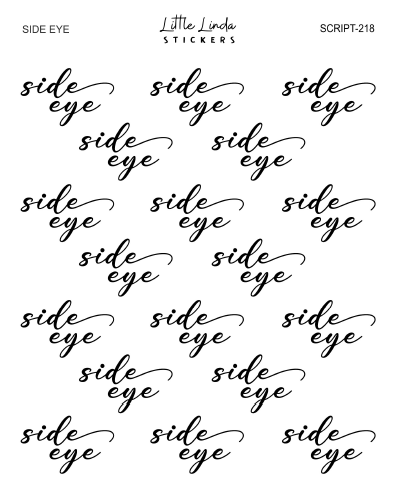 SIDE EYE
Little Linda
STICKERS
SCRIPT-218
side side side
eye eye eye
side side
eye eye
side side side
eye eye eye
side side
eye eye
side side side
eye eye eye
side side
eye eye
side side side
eye eye eye